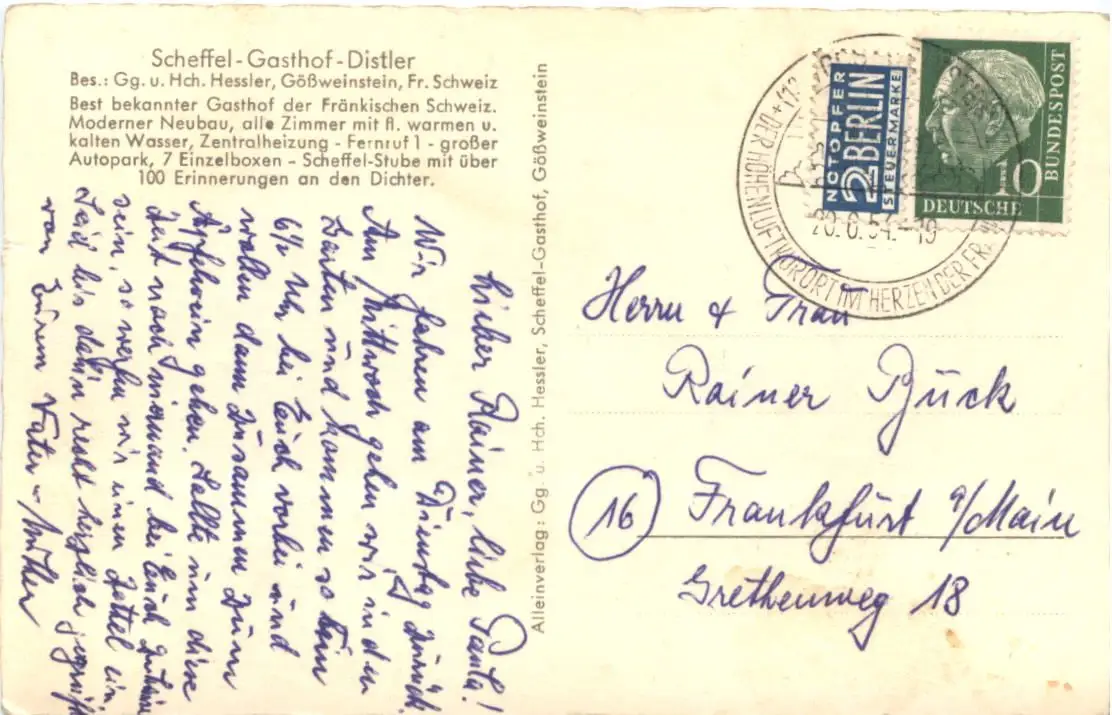 Scheffel-Gasthof-Distler
Bes.: Gg. u. Hch. Hessler, Gößweinstein, Fr. Schweiz
Best bekannter Gasthof der Fränkischen Schweiz.
Moderner Neubau, alle Zimmer mit fl. warmen u.
kalten Wasser, Zentralheizung - Fernruf 1 - großer
Autopark, 7 Einzelboxen - Scheffel-Stube mit über
100 Erinnerungen an den Dichter.
Lieber Rainer, liebe Paula!
Wir fahren am Dienstag zurück.
Am Mittwoch gehen wir in den
Garten und kommen so um
6½ Uhr bei Euch vorbei und
wollen dann zusammen zum
Äpfelwein gehen. Sollte um diese
Zeit noch niemand bei Euch
sein, so werfen wir einen Zettel ein.
Seid bis dahin recht herzlich gegrüßt
von Euren Vater - Mutter
Alleinverlag: Gg. u. Hch. Hessler, Scheffel-Gasthof, Gößweinstein
NOTOPFER
2 BERLIN
STEUERMARKE
10
DEUTSCHE
BUNDESPOST
DER HÖHENLUFTKURORT IM HERZEN DER FR.
20.6.54.-19
Herrn & Frau
Rainer Bück
16
Frankfurt a/Main
Grethenweg 18